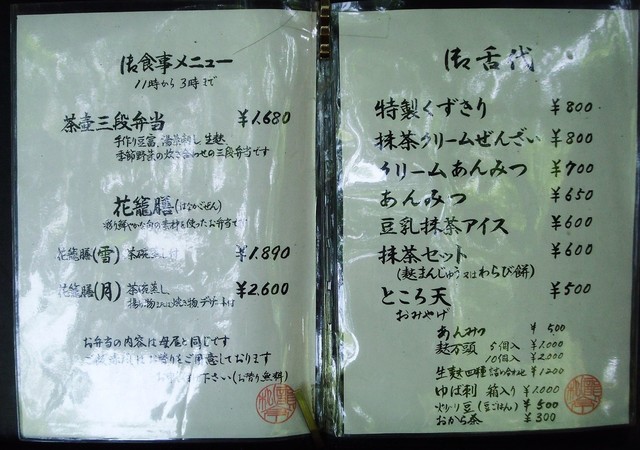 御食事メニュー
11時から3時まで
茶壺三段弁当 ¥1.680
手作り豆富、湯葉刺し 生麩
季節野菜の炊き合わせの三段弁当です
花籠膳(はなかごぜん)
彩り鮮やかな旬の素材を使ったお弁当です
花籠膳(雪) 茶碗蒸し付 ¥1.890
花籠膳(月) 茶碗蒸し ¥2.600
揚げ物又は焼き物 デザート付
お弁当の内容は母屋と同じです
をご用意しております
下さい(お替り無料)
御舌代
特製くずきり ¥800
抹茶クリームぜんざい ¥800
クリームあんみつ ¥700
あんみつ ¥650
豆乳抹茶アイス ¥600
抹茶セット ¥600
(麩まんじゅう又はわらび餅)
ところ天 ¥500
おみやげ
あんみつ ¥500
麩万頭 5個入 ¥1.000
10個入 ¥2.000
生麩四種詰め合わせ ¥1200
ゆば刺 箱入り ¥1.000
炒り豆(豆ごはん) ¥500
おから茶 ¥300